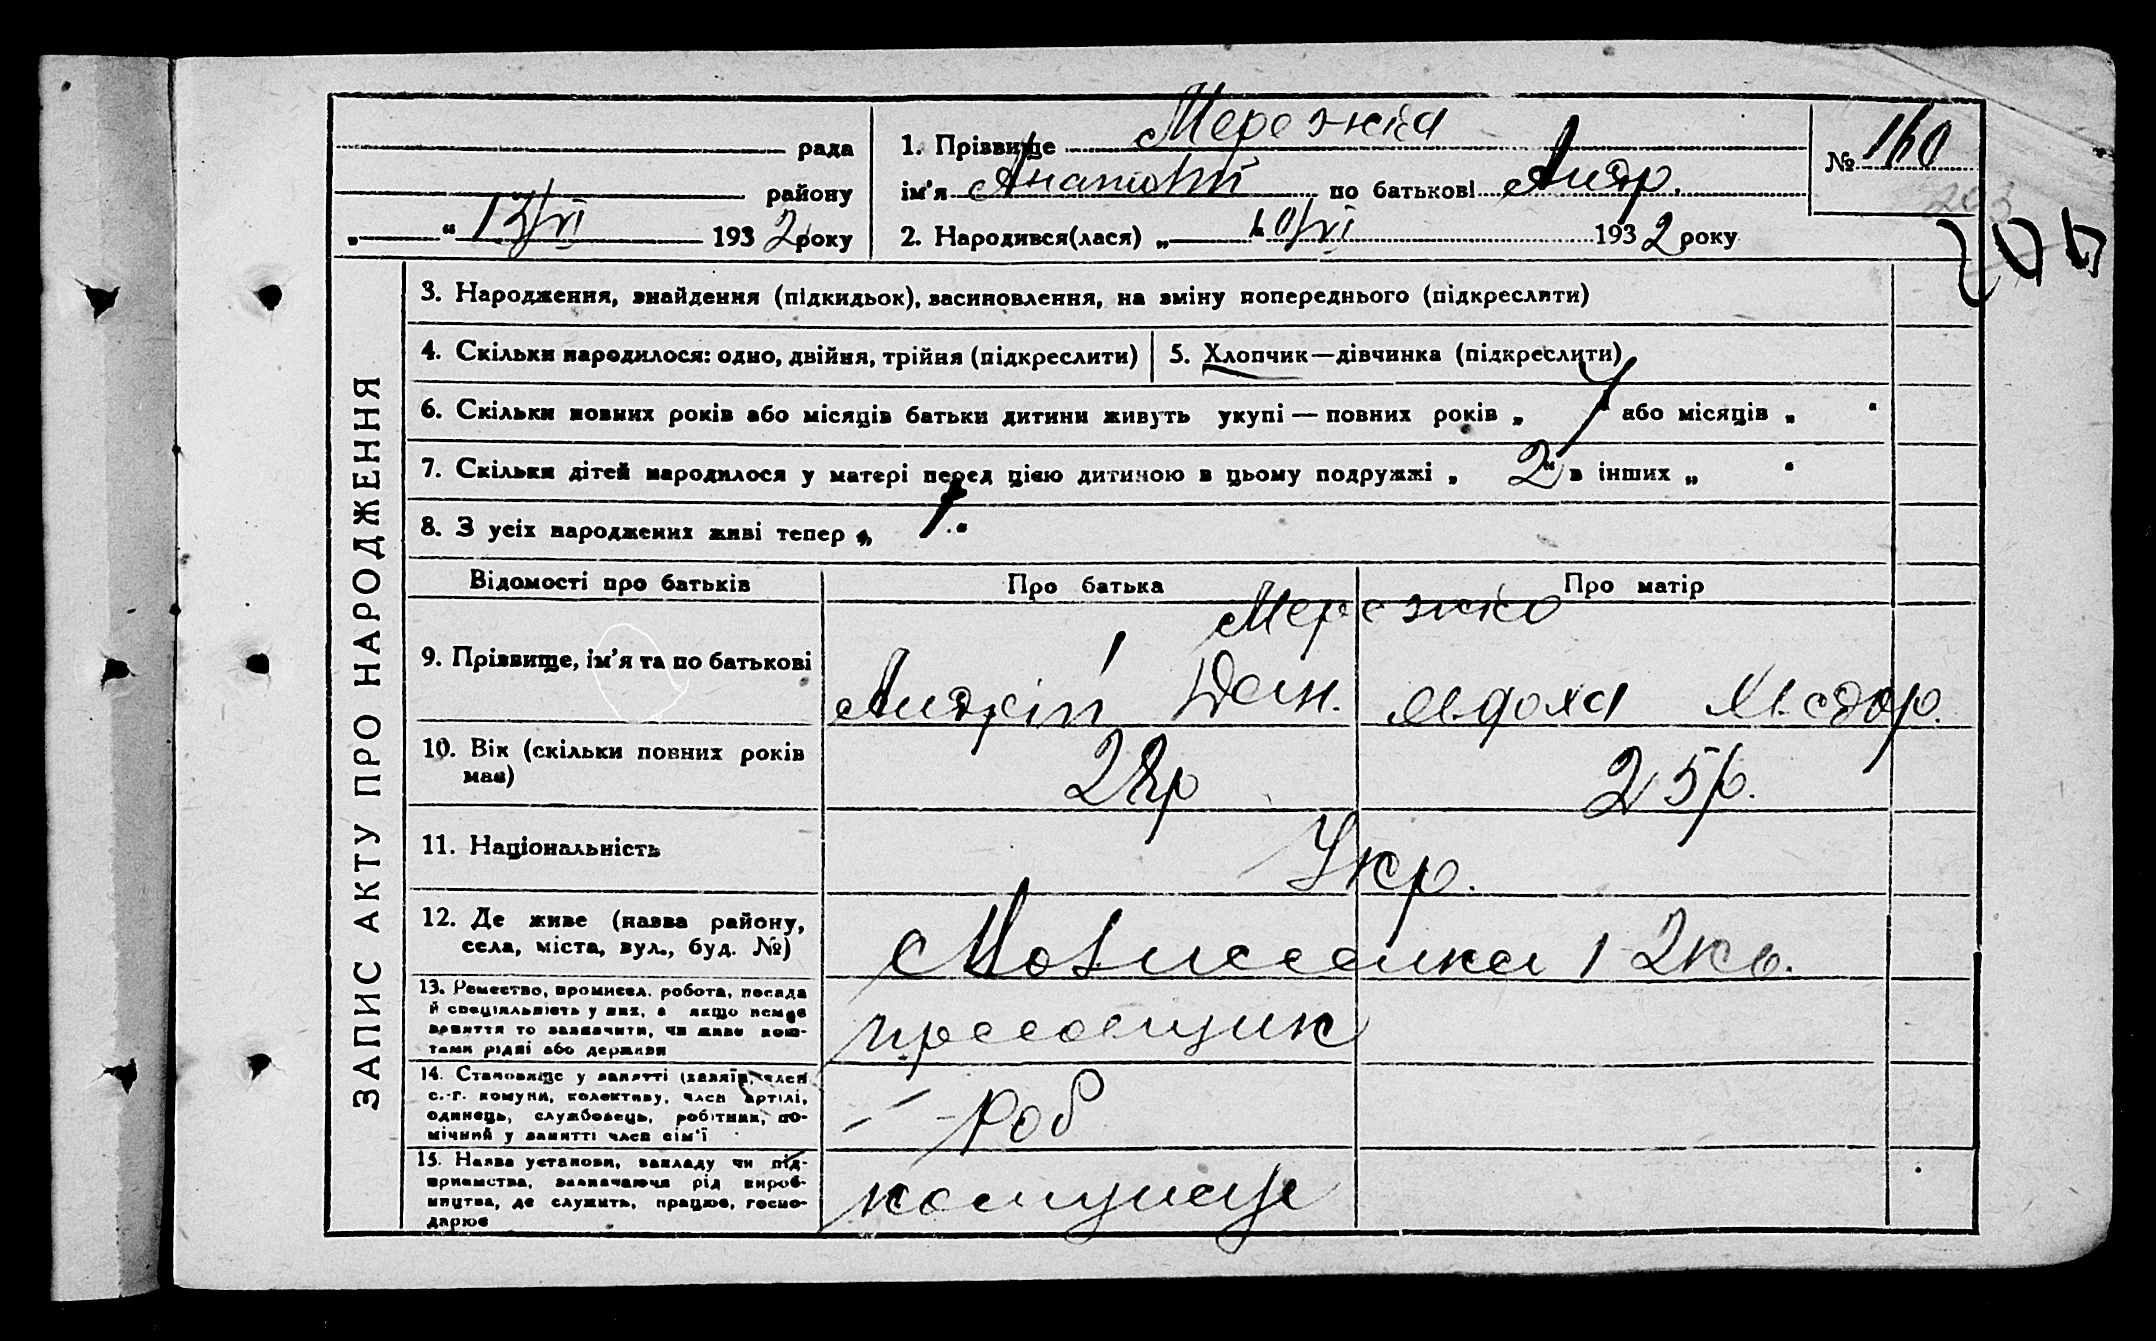 рада
району
„ “ 12/VI 1932 року
1. Прізвище Мережка
ім'я Анатолій по батькові Андр.
2. Народився(лася) „ 10/VI 1932 року
№ 160
203
204
ЗАПИС АКТУ ПРО НАРОДЖЕННЯ
3. Народження, знайдення (підкидьок), засиновлення, на зміну попереднього (підкреслити)
4. Скільки народилося: одно, двійня, трійня (підкреслити)
5. Хлопчик—дівчинка (підкреслити)
6. Скільки повних років або місяців батьки дитини живуть укупі — повних років „ “ або місяців „ “
7. Скільки дітей народилося у матері перед цією дитиною в цьому подружжі „ 2 “ в інших „ “
8. З усіх народжених живі тепер „ 1 “
Відомості про батьків
Про батька
Про матір
9. Прізвище, ім'я та по батькові
Мережко
Андрій Дан.
Мадор.
10. Вік (скільки повних років
має)
28р
25р.
11. Національність
Укр.
12. Де живе (назва району,
села, міста, вул., буд. №)
1 2кв.
13. Ремество, промисел. робота, посада
й спеціяльність у них, а якщо немає
заняття то зазначити, чи живе кош-
тами рідні або держави
14. Становище у занятті (хазяїн, член
с.-г. комуни, колективу, член артілі,
одинець, службовець, робітник, по-
мічний у занятті член сім'ї
Роб
15. Назва установи, закладу чи під-
приємства, зазначаючи рід вироб-
ництва, де служить, працює, госпо-
дарює